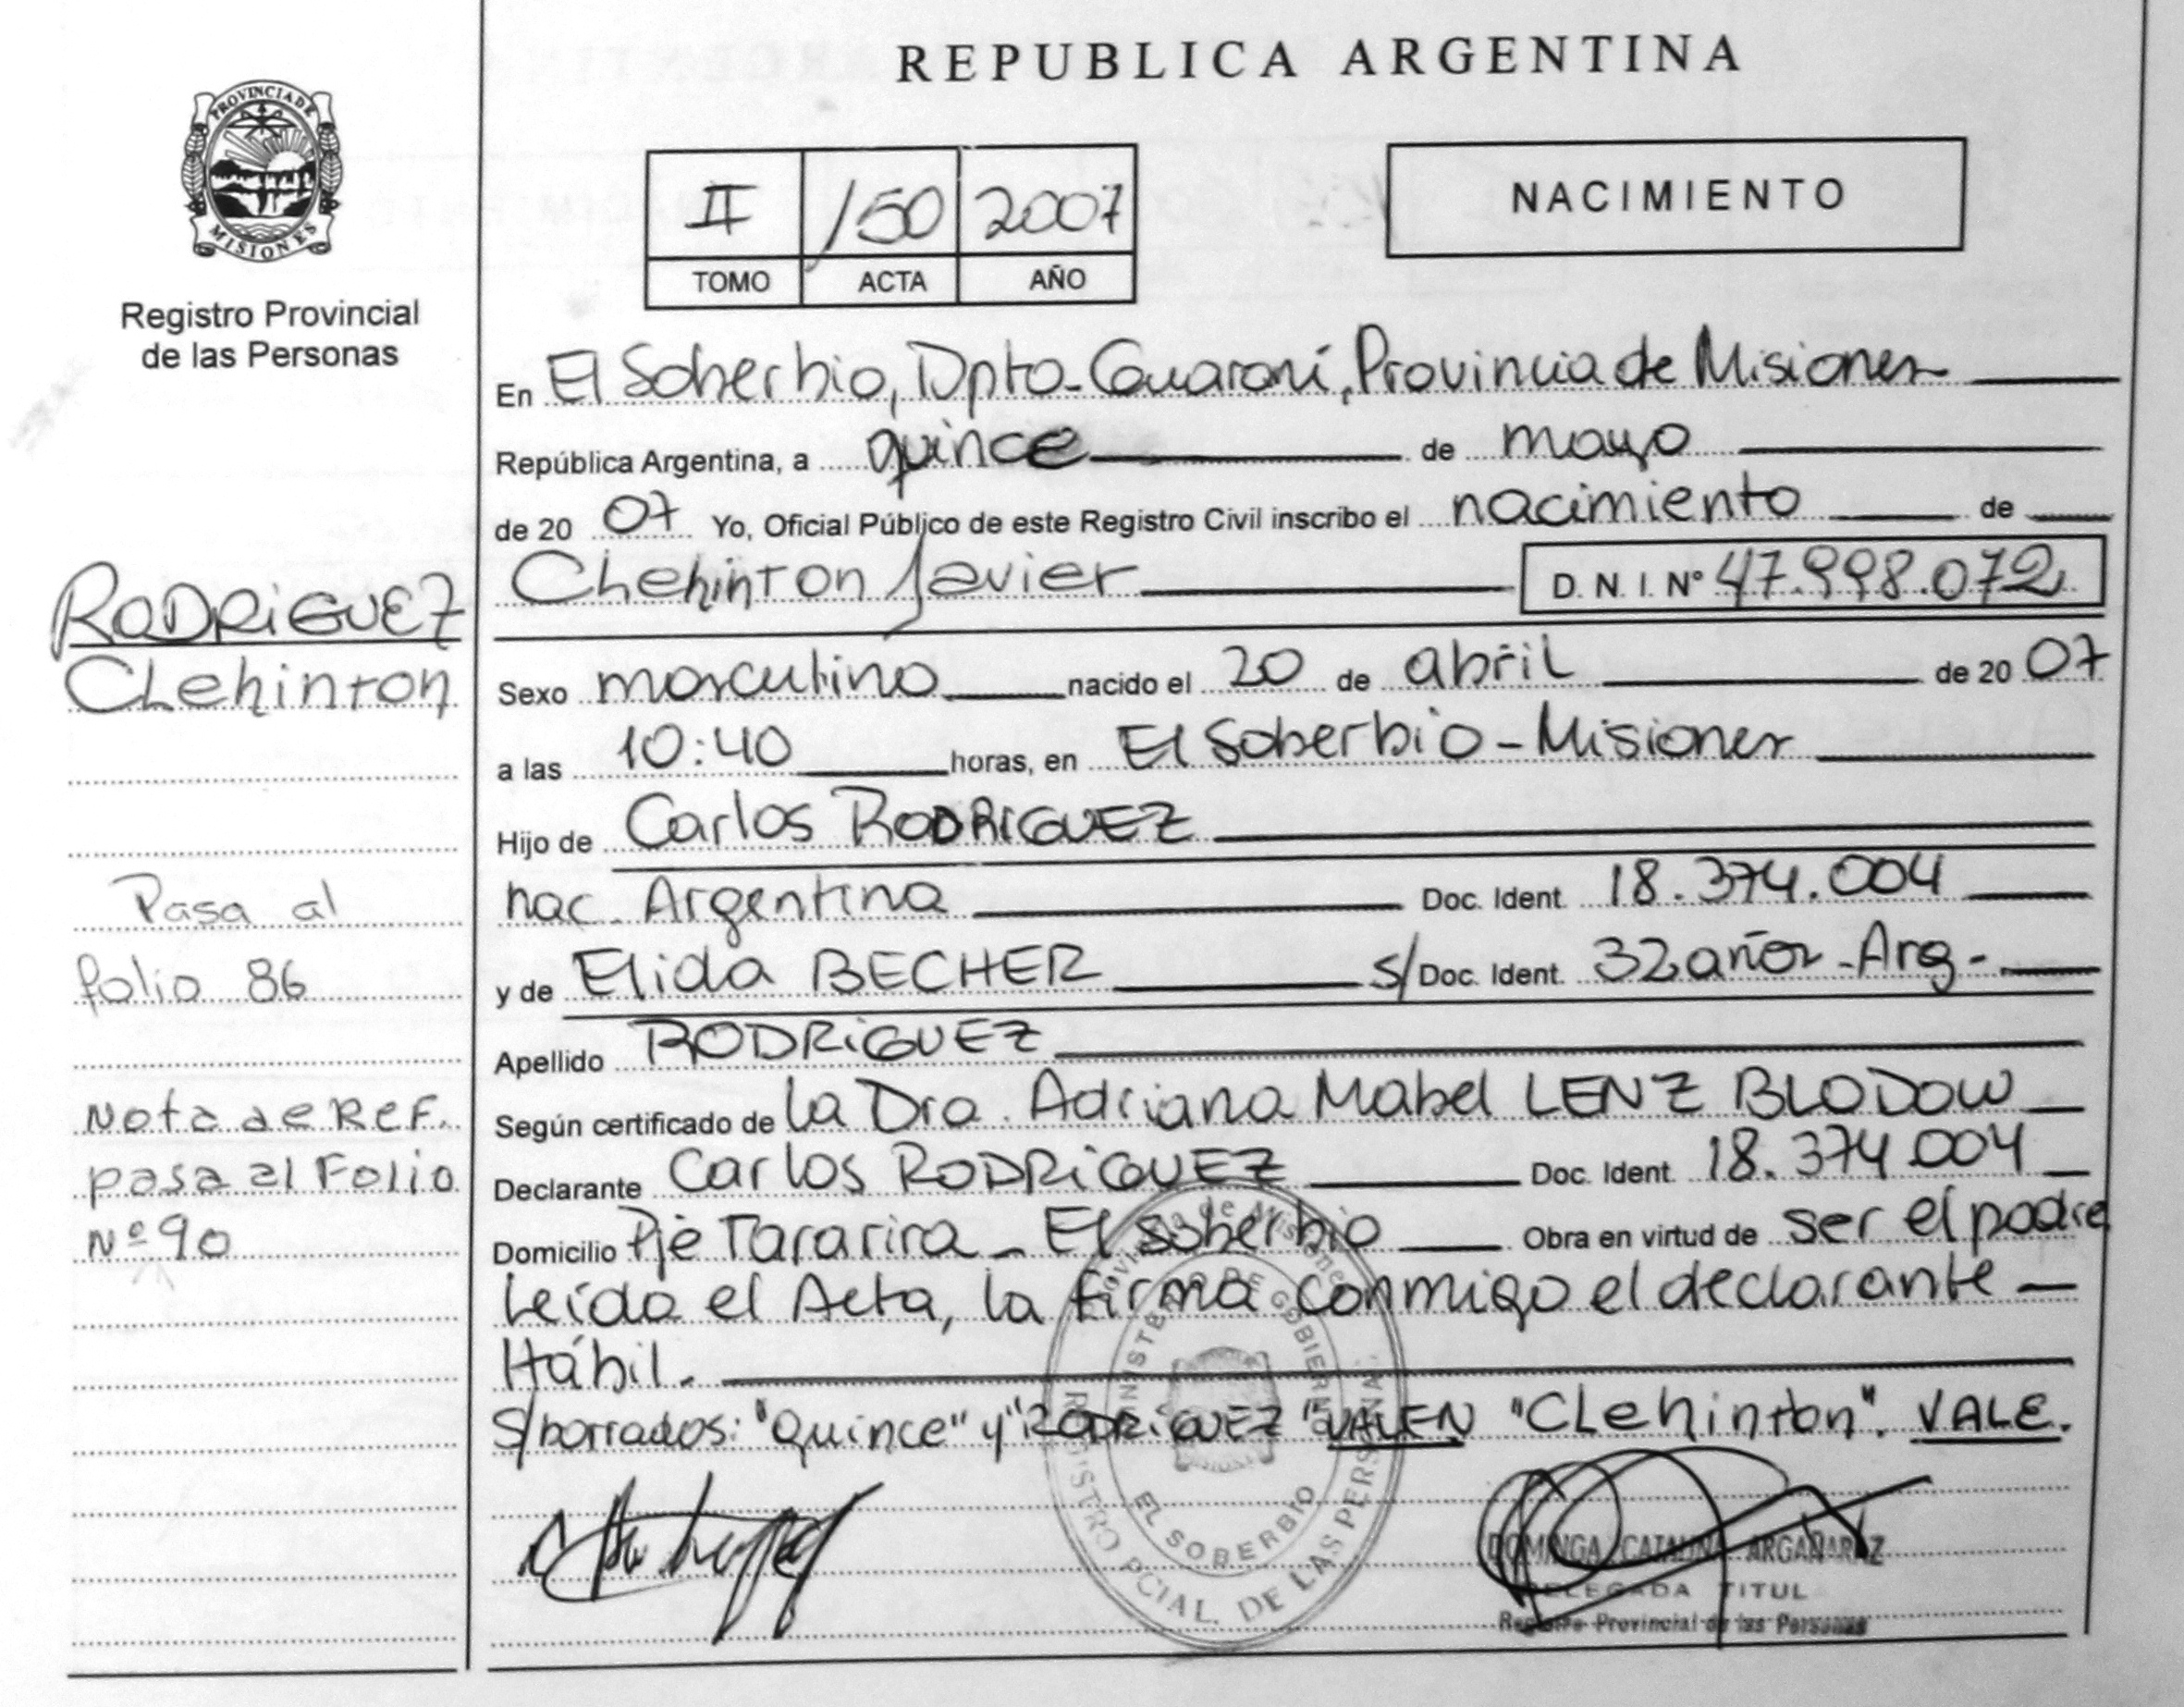 REPUBLICA ARGENTINA
PROVINCIA DE MISIONES
Registro Provincial
de las Personas
II 150 2007
TOMO ACTA AÑO
NACIMIENTO
En El Soberbio, Dpto. Guaraní, Provincia de Misiones
República Argentina, a quince de mayo
de 20 07 Yo, Oficial Público de este Registro Civil inscribo el nacimiento de
Clehinton Javier D. N. I. Nº 47.998.072
Sexo masculino nacido el 20 de abril de 20 07
a las 10:40 horas, en El Soberbio - Misiones
Hijo de Carlos RODRIGUEZ
nac. Argentina Doc. Ident. 18.374.004
y de Elida BECHER s/ Doc. Ident. 32 años - Arg -
Apellido RODRIGUEZ
Según certificado de la Dra. Adriana Mabel LENZ BLODOW
Declarante Carlos RODRIGUEZ Doc. Ident. 18.374.004
Domicilio Pje Tararira - El Soberbio Obra en virtud de ser el padre
Leída el Acta, la firma conmigo el declarante
Hábil.
S/borrados: "Quince" y "RODRIGUEZ" VALEN "CLehinton". VALE.
RODRIGUEZ
CLehinton
Pasa al
folio 86
Nota de REF.
pasa al Folio
Nº 90
Provincia de Misiones
MINISTERIO DE GOBIERNO
EL SOBERBIO
REGISTRO PCIAL. DE LAS PERSONAS
DOMINGA CATALINA ARGAÑARAZ
DELEGADA TITUL
Registro Provincial de las Personas